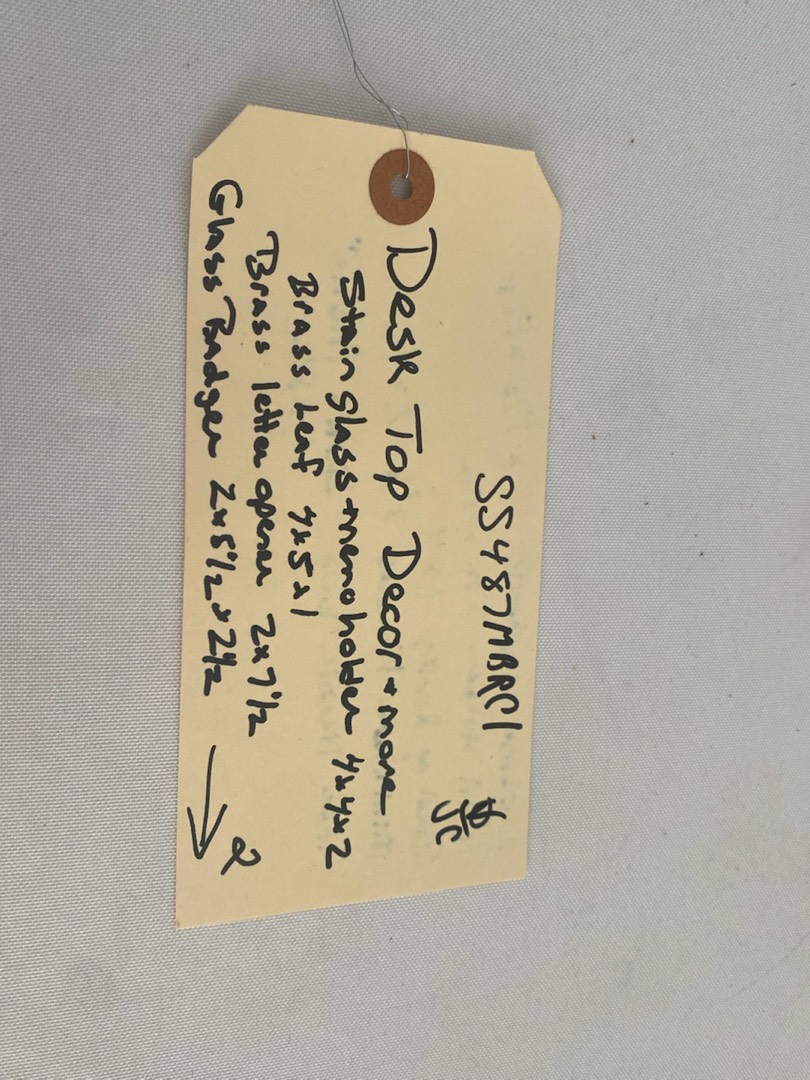 SS487MBRC1
Desk Top Decor + more
Stain glass memo holder 4x4x2
Brass Leaf 4x5x1
Brass letter opener 2x7 1/2
Glass Badger 2x5 1/2x2 1/2
2